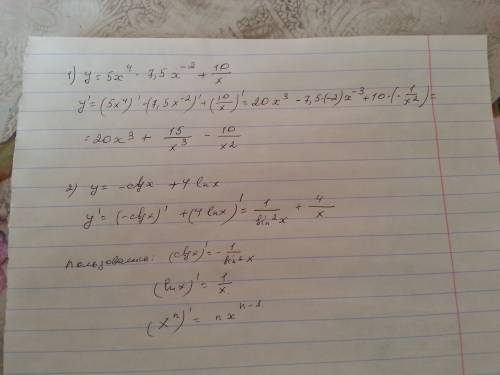 1) y = 5x⁴ - 7,5 x⁻² + 10/x
y' = (5x⁴)' - (7,5x⁻²)' + (10/x)' = 20x³ - 7,5·(-2)x⁻³ + 10·(-1/x²) =
= 20x³ + 15/x³ - 10/x2
2) y = -ctgx + 4 lnx
y' = (-ctgx)' + (4 lnx)' = 1/sin²x + 4/x
(ctgx)' = -1/sin²x
(lnx)' = 1/x.
(xⁿ)' = n xⁿ⁻¹